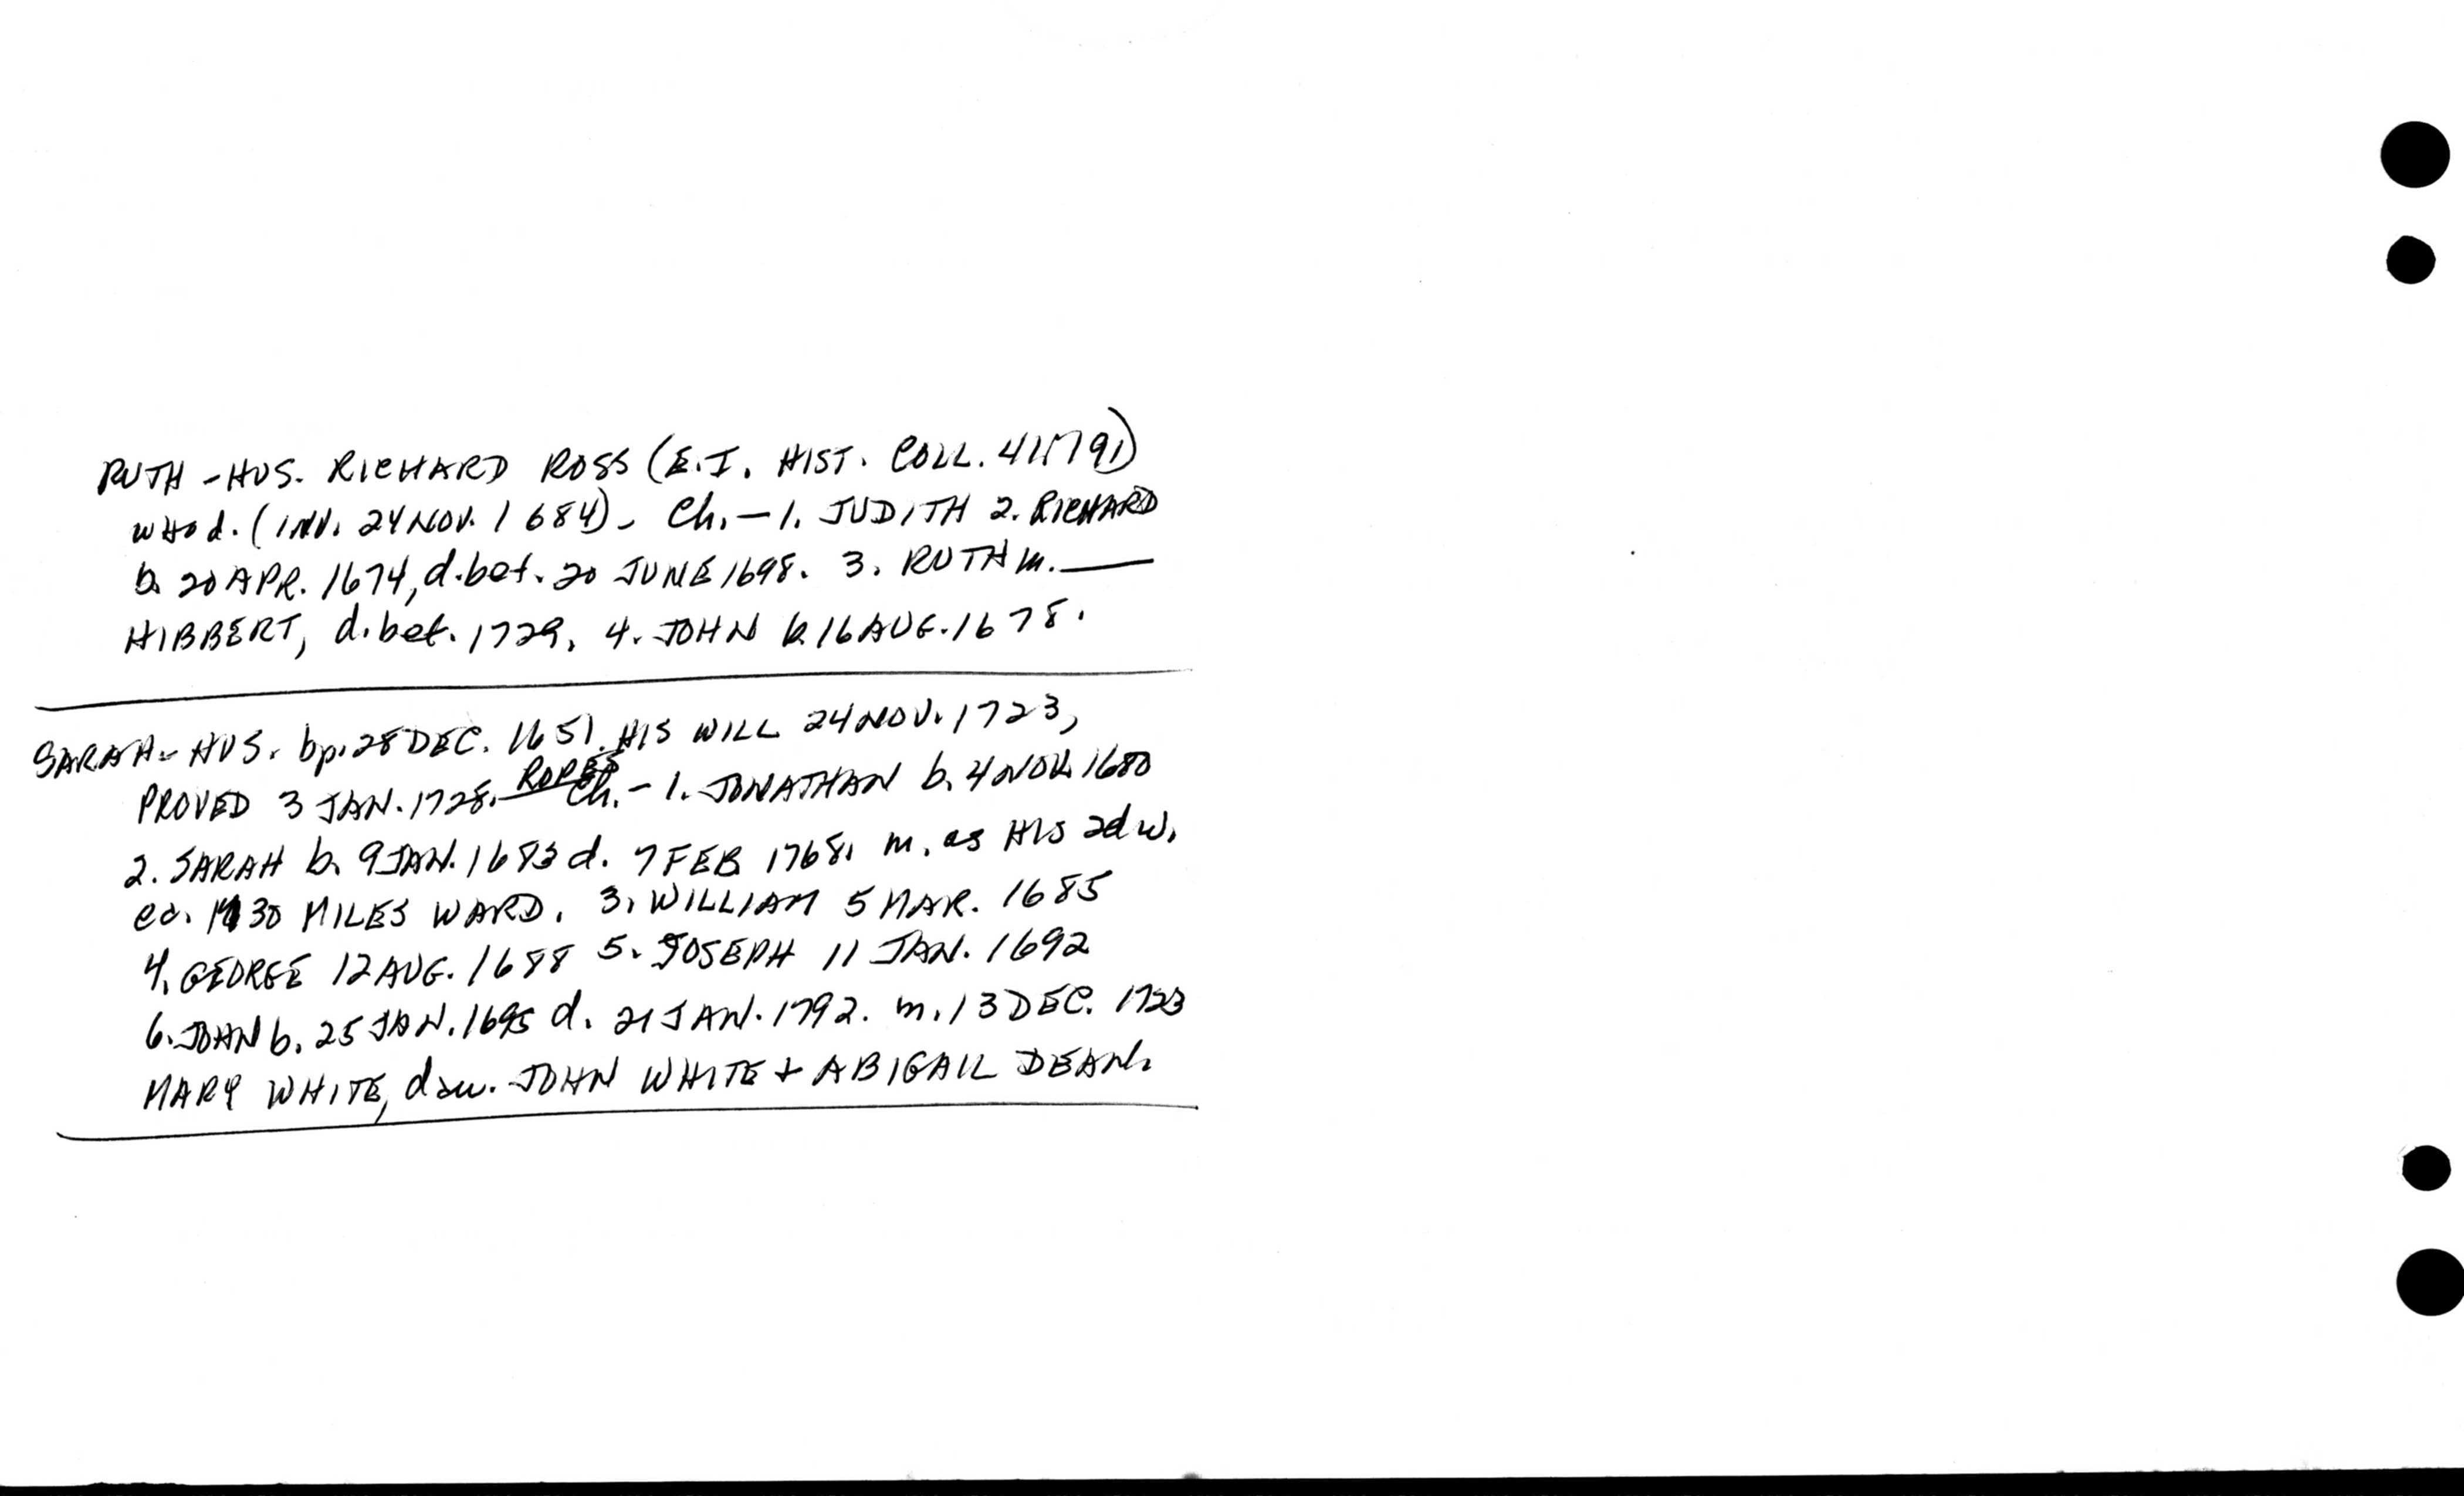 RUTH - HUS. RICHARD ROSS (E.I. HIST. COLL. 41:179)
WHO d. (INV. 24 NOV. 1684). Ch. - 1. JUDITH 2. RICHARD
b. 20 APR. 1674, d. bef. 20 JUNE 1698. 3. RUTH m. ____
HIBBERT, d. bef. 1729. 4. JOHN b. 16 AUG. 1678.
SARAH - HUS. bp. 28 DEC. 1651. HIS WILL 24 NOV. 1723,
ROPES
PROVED 3 JAN. 1728. Ch. - 1. JONATHAN b. 4 NOV. 1680
2. SARAH b. 9 JAN. 1683 d. 7 FEB. 1768. m. as HIS 2d w.
ca. 1730 MILES WARD. 3. WILLIAM 5 MAR. 1685
4. GEORGE 12 AUG. 1688 5. JOSEPH 11 JAN. 1692
6. JOHN b. 25 JAN. 1695 d. 21 JAN. 1792. m. 13 DEC. 1723
MARY WHITE, dau. JOHN WHITE + ABIGAIL DEAN.